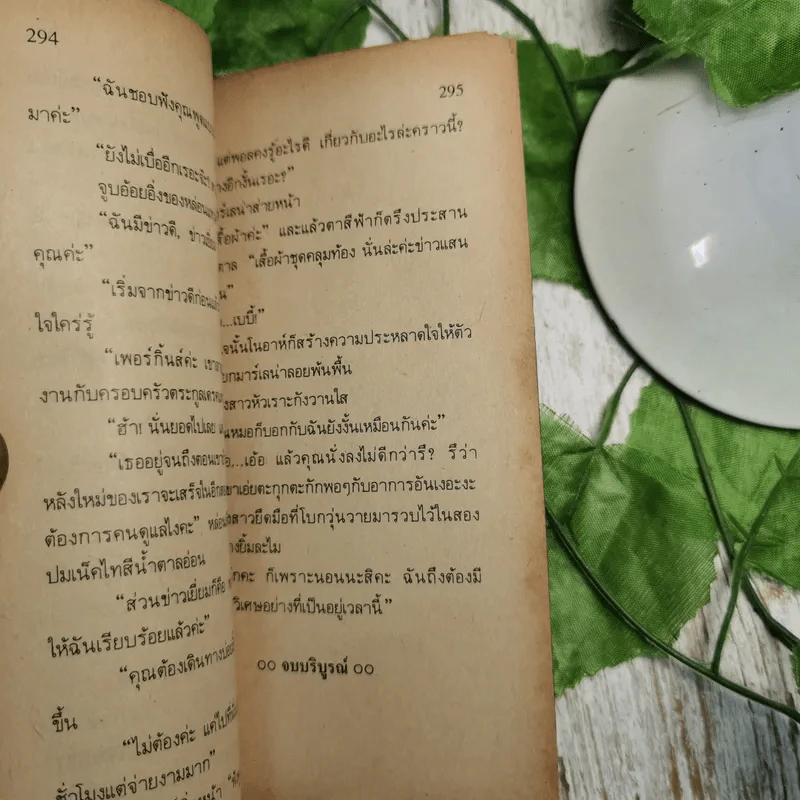 294
“ฉันชอบฟังคุณพูด
มาค่ะ”
“ยังไม่เบื่ออีกเรอะจ๊ะ
จูบอ้อยอิ่งของหล่อน
“ฉันมีข่าวดี,
คุณค่ะ”
“เริ่มจากข่าวดีก่อน
ใจใคร่รู้
“เพอร์กิ้นส์ค่ะ
งานกับครอบครัวตระกูล
“ฮ้า! นั่นยอดไปเลย
“เธออยู่จนถึงตอน
หลังใหม่ของเราจะเสร็จในอีก
ต้องการคนดูแลไงคะ”
ปมเน็คไทสีน้ำตาลอ่อน
“ส่วนข่าวเยี่ยมก็คือ
ให้ฉันเรียบร้อยแล้วค่ะ”
“คุณต้องเดินทาง
ขึ้น
“ไม่ต้องค่ะ แค่ไปที่
ชั่วโมงแต่จ่ายงามมาก”
295
แต่พอลคงรู้อะไรดี เกี่ยวกับอะไรล่ะคราวนี้?
างอีกงั้นเรอะ?”
ร์เลน่าส่ายหน้า
สื้อผ้าค่ะ” และแล้วตาสีฟ้าก็ตรึงประสาน
ตาล “เสื้อผ้าชุดคลุมท้อง นั่นล่ะค่ะข่าวแสน
น”
...เบบี้!”
จนั้นโนอาห์ก็สร้างความประหลาดใจให้ตัว
ยกมาร์เลน่าลอยพ้นพื้น
งสาวหัวเราะกังวานใส
แหมอก็บอกกับฉันยังงั้นเหมือนกันค่ะ”
อ...เอ้อ แล้วคุณนั่งลงไม่ดีกว่ารึ? รึว่า
ขาเอ่ยตะกุกตะกักพอๆกับอาการอันเงอะงะ
งสาวยึดมือที่โบกวุ่นวายมารวบไว้ในสอง
างยิ้มละไม
ักคะ ก็เพราะนอนนะสิคะ ฉันถึงต้องมี
วิเศษอย่างที่เป็นอยู่เวลานี้”
○○ จบบริบูรณ์ ○○